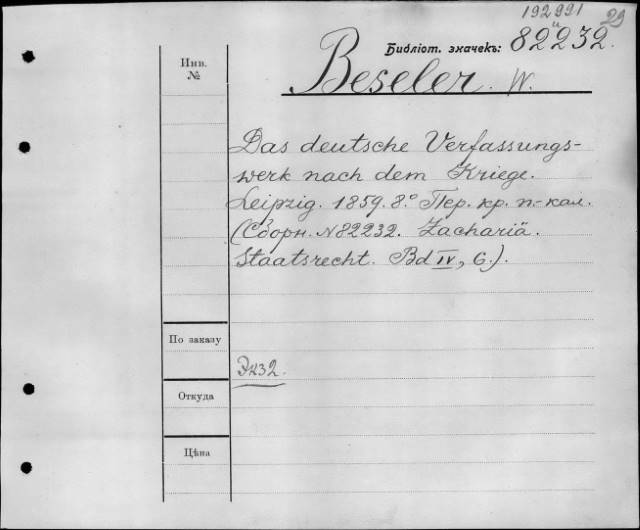 192991 29
и
Библіот. значекъ: 82232.
Инв.
№
Beseler. W.
Das deutsche Verfassungs-
werk nach dem Kriege.
Leipzig. 1859. 8° Пер. кр. п.-кал.
(Сборн. №82232. Zachariä.
Staatsrecht. Bd IV, 6.).
По заказу
Э432.
Откуда
Цѣна